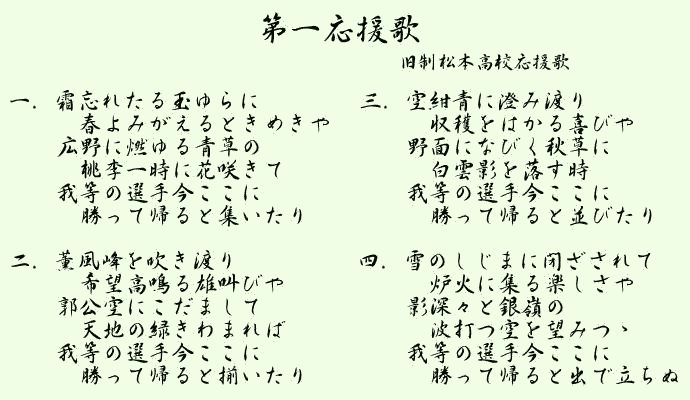 第一応援歌
旧制松本高校応援歌
一. 霜忘れたる玉ゆらに
春よみがえるときめきや
広野に燃ゆる青草の
桃李一時に花咲きて
我等の選手今ここに
勝って帰ると集いたり
二. 薫風峰を吹き渡り
希望高鳴る雄叫びや
郭公空にこだまして
天地の緑きわまれば
我等の選手今ここに
勝って帰ると揃いたり
三. 空紺青に澄み渡り
収穫をはかる喜びや
野面になびく秋草に
白雲影を落す時
我等の選手今ここに
勝って帰ると並びたり
四. 雪のしじまに閉ざされて
炉火に集る楽しさや
影深々と銀嶺の
波打つ空を望みつゝ
我等の選手今ここに
勝って帰ると出で立ちぬ